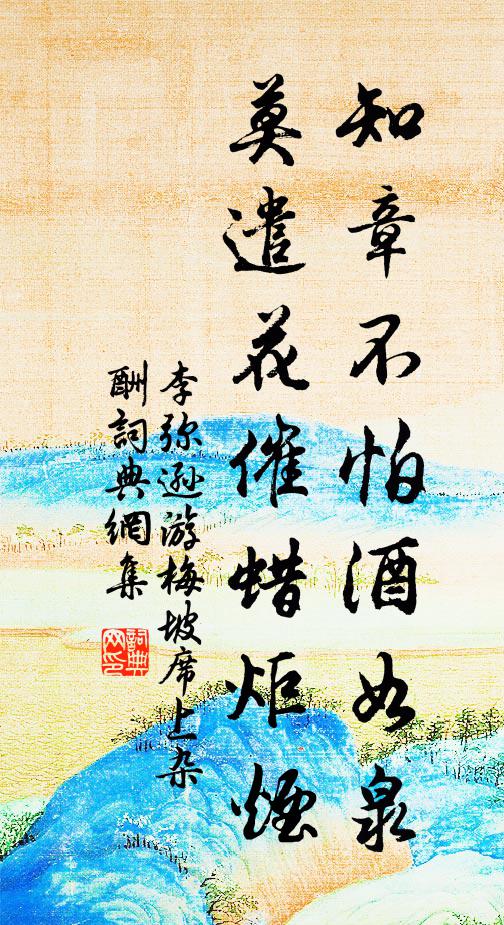 知章不怕酒如泉
莫遣花催蜡炬煙
李弥遜游梅坡席上杂
酬詞典網集
詞典
网印